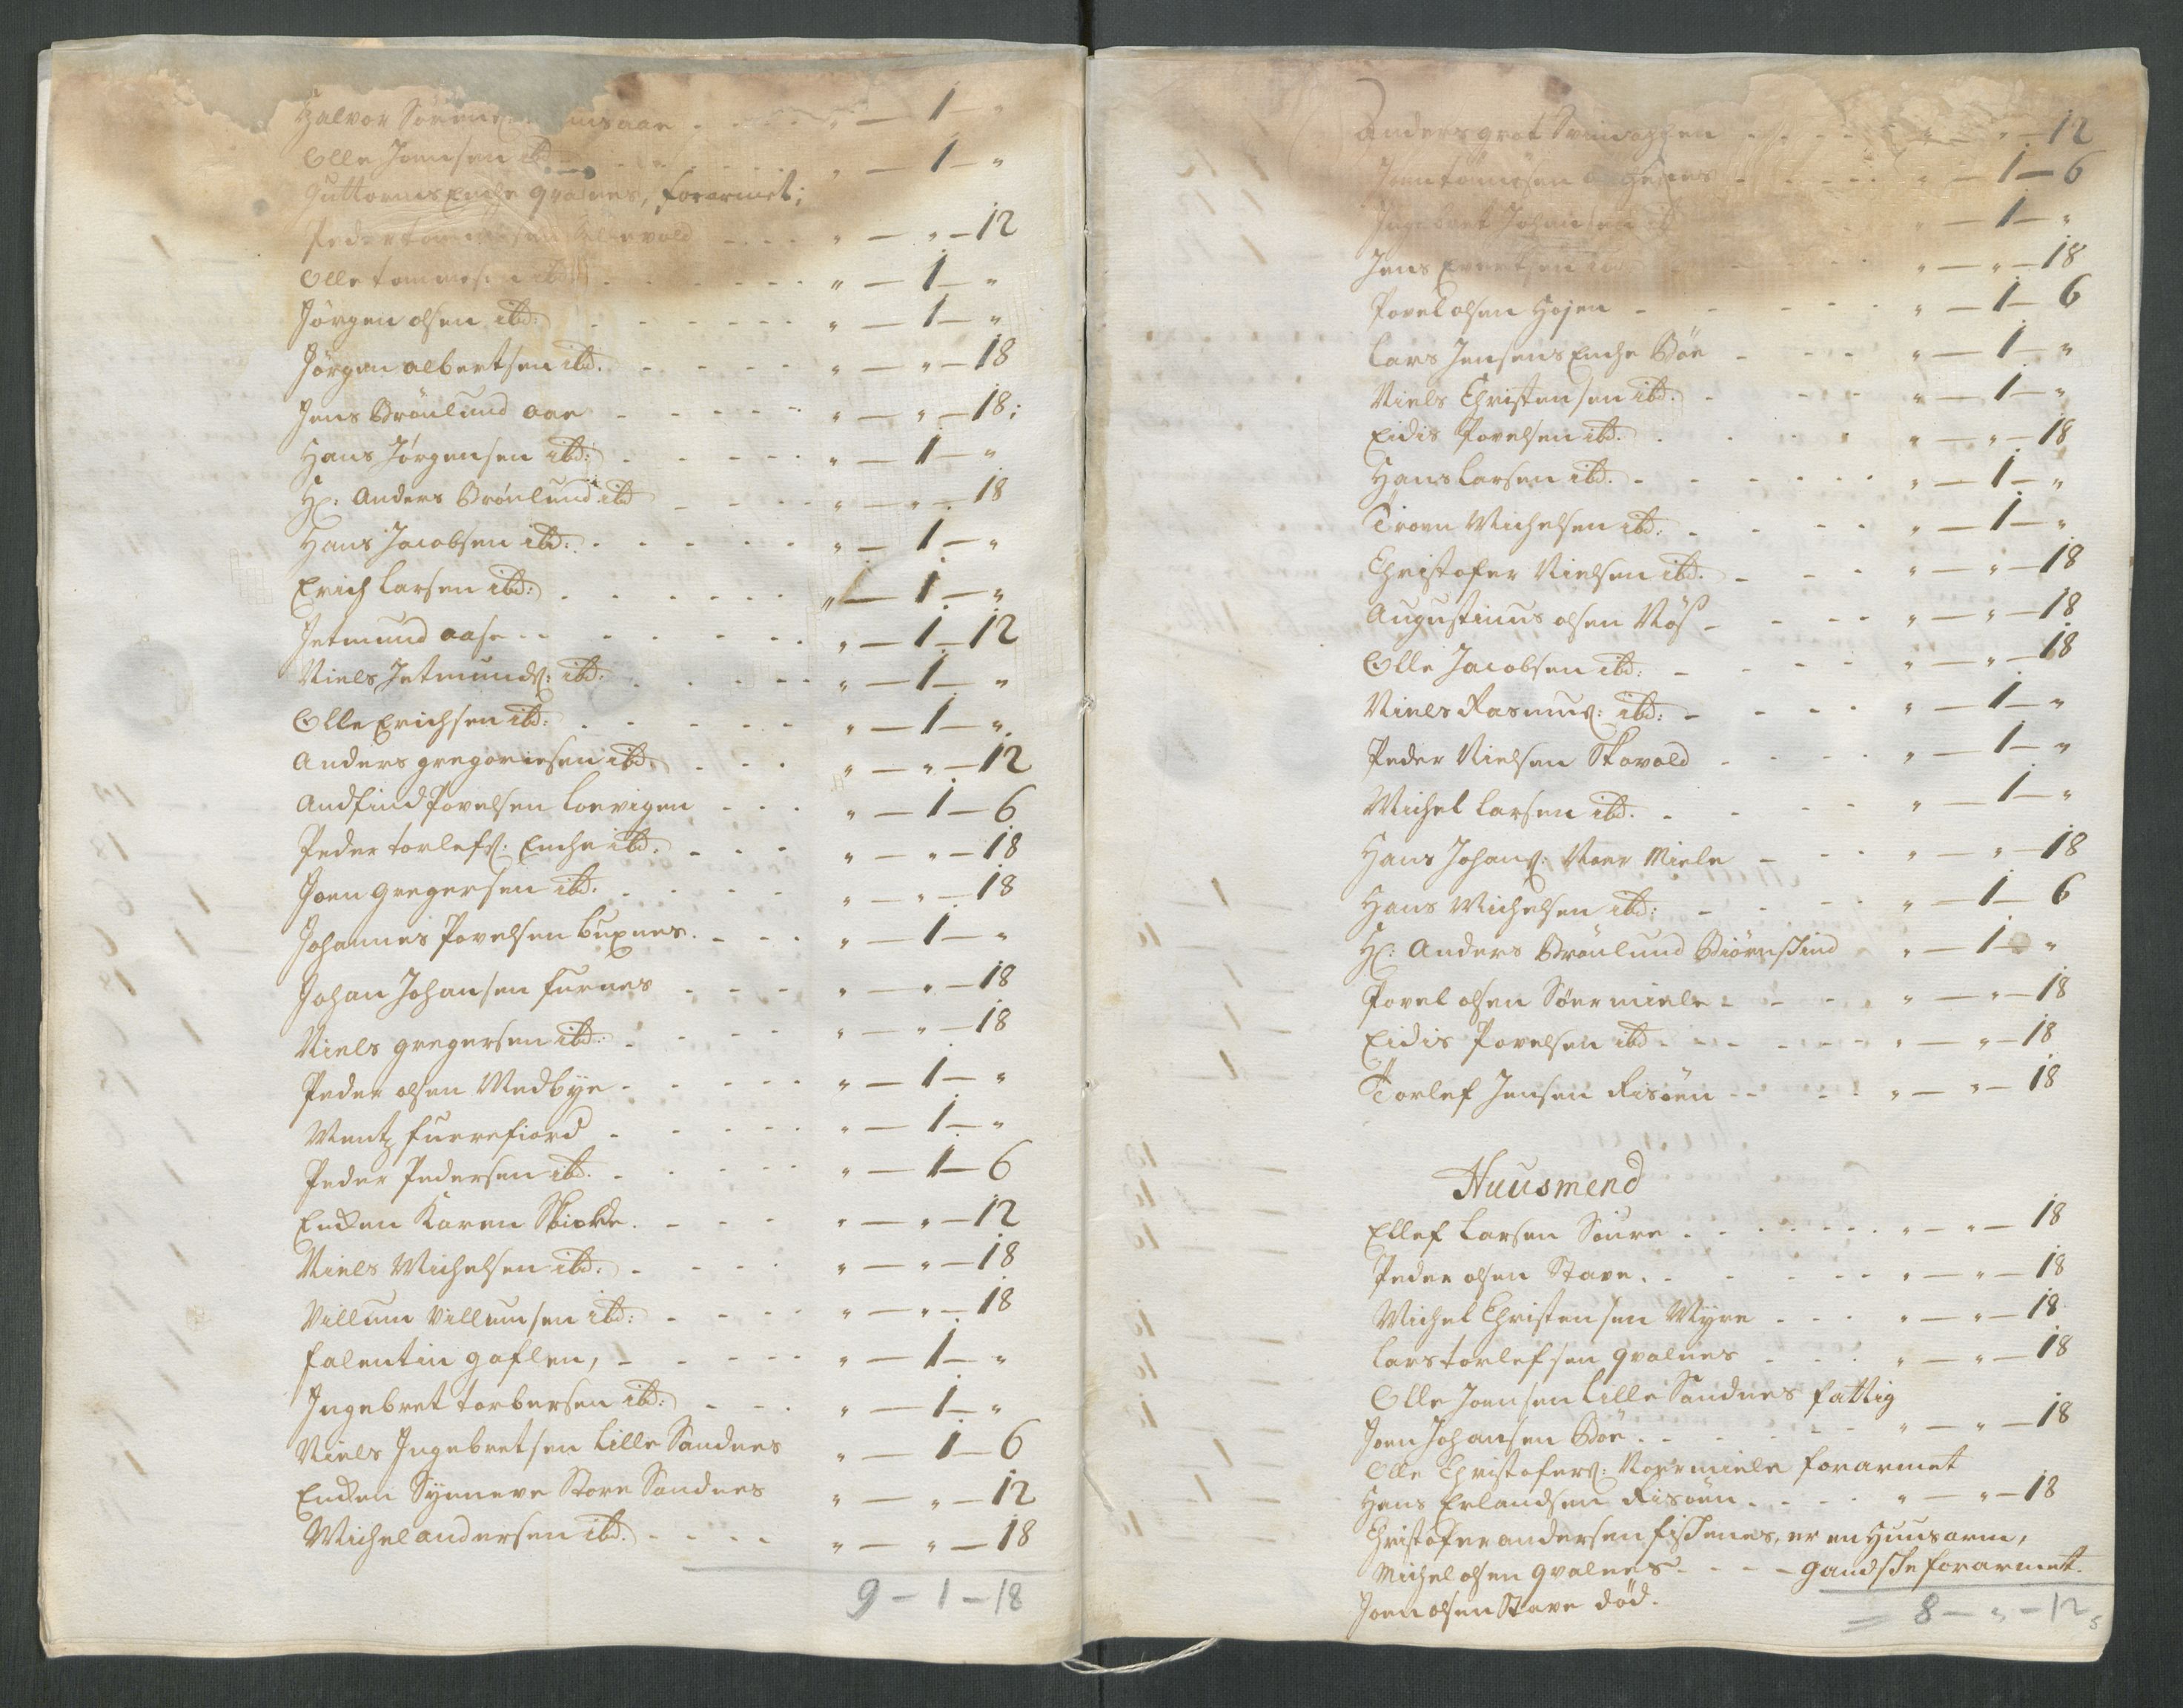 Halvor Sørens
Olle Joensen ibd „ — 1 — „
Guttorms Enche qvalnes, forarmet;
Peder „ — „ — 12
Olle tommes ibd „ — 1 — „
Jørgen olsen ibd: „ — 1 — „
Jørgen albertsen ibd. „ — „ — 18
Jens Brönlund aae „ — „ — 18;
Hans Jørgensen ibd: „ — 1 — „
Hr: Anders Brönlund ibd „ — „ — 18
Hans Jacobsen ibd: „ — 1 — „
Erich Larsen ibd: „ — 1 — „
Jetmund aase „ — 1 — 12
Niels Jetmunds: ibd: „ — 1 — „
Olle Erichsen ibd: „ — 1 — „
Anders gregoriesen ibd „ — „ — 12
Andfind Povelsen Loevigen „ — 1 — 6
Peder torlefs: Enche ibd. „ — „ — 18
Joen gregersen ibd. „ — „ — 18
Johannes Povelsen buxnes. „ — 1 — „
Johan Johansen furnes „ — „ — 18
Niels gregersen ibd: „ — „ — 18
Peder olsen Medbye „ — 1 — „
Mentz fuerefiord „ — 1 — „
Peder Pedersen ibd. „ — 1 — 6
Encken Karen „ — „ — 12
Niels Michelsen ibd. „ — „ — 18
Villum Villumsen ibd: „ — „ — 18
falentin gaflen, „ — 1 — „
Ingebret torbersen ibd: „ — 1 — „
Niels Ingebretsen Lille Sandnes „ — 1 — 6
Encken Synneve Store Sandnes „ — „ — 12
Michel andersen ibd. „ — „ — 18
9 — 1 — 18
Anders grot „ — „ — 12
„ — 1 — 6
Ingebret Johansen „ — 1 — „
Jens Evertsen ibd „ — „ — 18
Povel olsen Højen „ — 1 — 6
Lars Jensens Enche Böe „ — 1 — „
Niels Christensen ibd. „ — 1 — „
Eidis Povelsen ibd. „ — „ — 18
Hans Larsen ibd. „ — 1 — „
Troen Michelsen ibd: „ — 1 — „
Christofer Nielsen ibd. „ — „ — 18
Augustinus olsen Nös „ — „ — 18
Olle Jacobsen ibd: „ — „ — 18
Niels Rasmus: ibd: „ — 1 — „
Peder Nielsen Skovold „ — 1 — „
Michel Larsen ibd. „ — 1 — „
Hans Johans: Noer Miele „ — „ — 18
Hans Michelsen ibd: „ — 1 — 6
Hr: Anders Brönlund Biörnskind „ — 1 — „
Povel olsen Söer miele „ — „ — 18
Eidis Povelsen ibd „ — „ — 18
Torlef Jensen Risöen „ — „ — 18
Huusmend
Ellef Larsen Söure „ — „ — 18
Peder olsen Stave. „ — „ — 18
Michel Christensen Myre „ — „ — 18
Lars torlefsen qvalnes „ — „ — 18
Olle Joensen Lille Sandnes fattig
Joen Johansen Böe „ — „ — 18
Olle Christofers: Noermiele forarmet
Hans Erlandsen Risöen „ — „ — 18
Christofer andersen fiskenes, er en Huusarm,
Michel olsen qvalnes - - - gandske forarmet.
Joen olsen Stave död.
8 — „ — 12